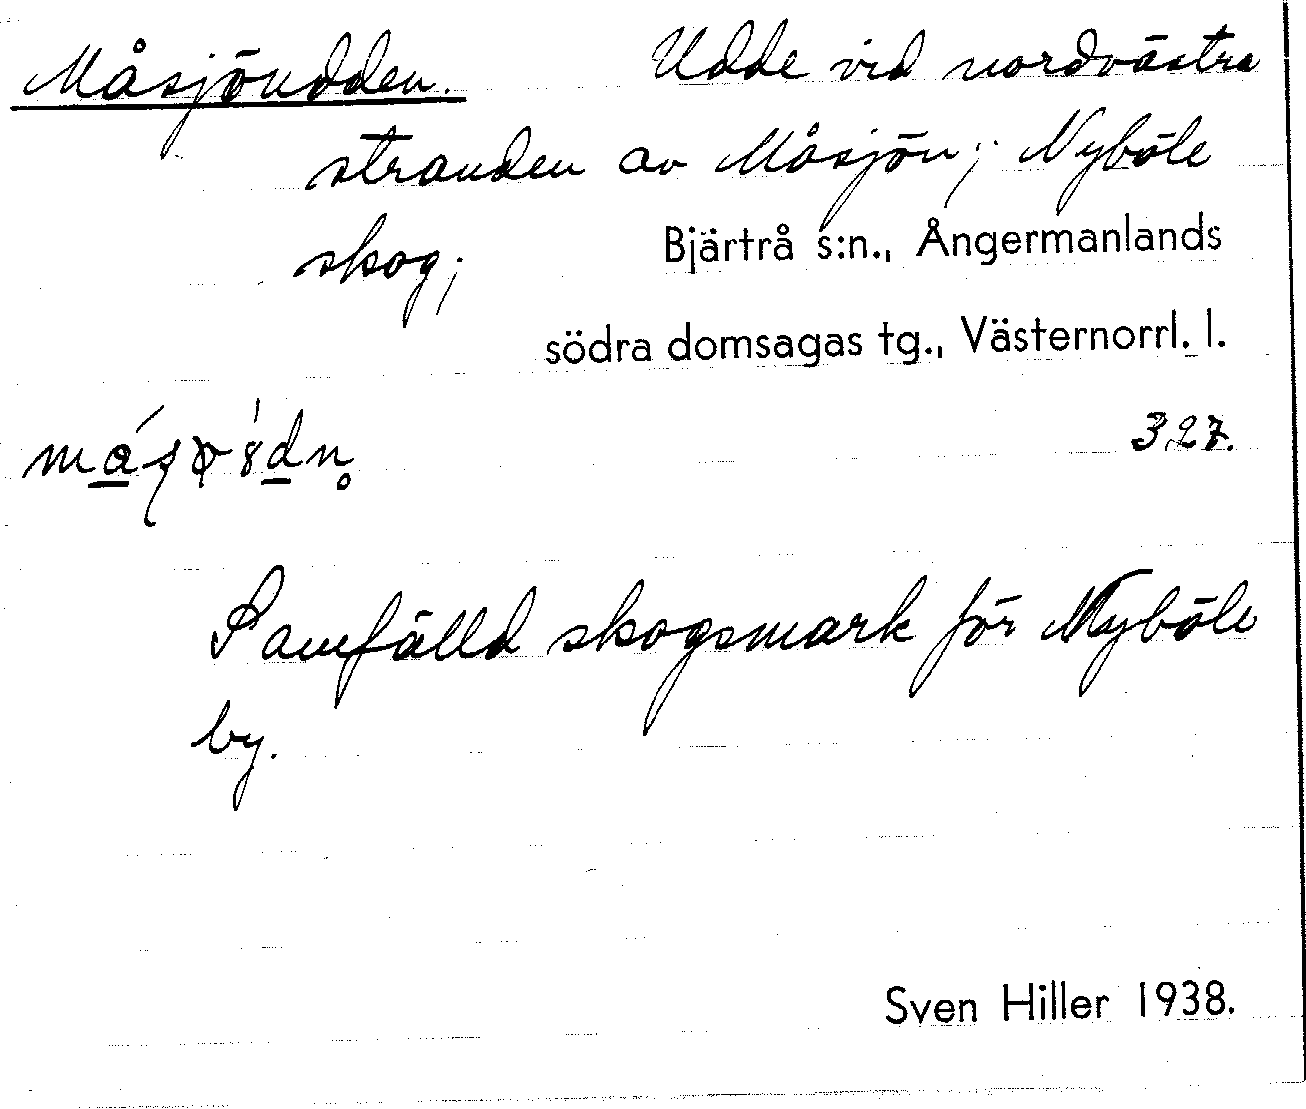 Måsjöudden. Udde vid nordvästra
stranden av Måsjön; Nyböle
skog; Bjärtrå s:n., Ångermanlands
södra domsagas tg., Västernorrl. l.
327.
Samfälld skogsmark för Nyböle
by.
Sven Hiller 1938.